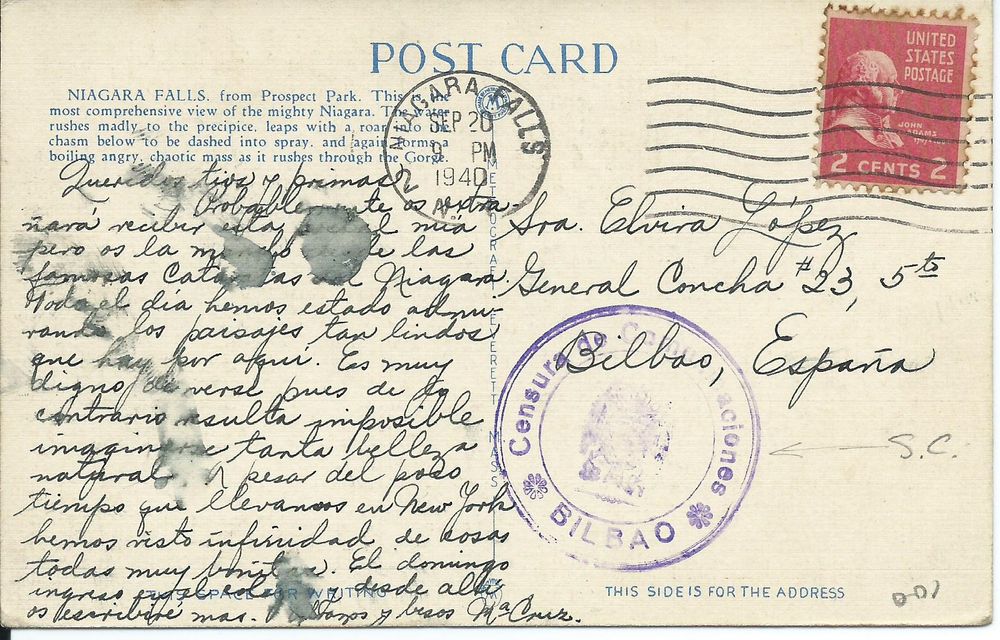 POST CARD
NIAGARA FALLS, from Prospect Park. This is the
most comprehensive view of the mighty Niagara. The water
rushes madly to the precipice, leaps with a roar into the
chasm below to be dashed into spray, and again forms a
boiling angry, chaotic mass as it rushes through the Gorge.
NIAGARA FALLS
SEP 20
9 PM
1940
N.Y.
UNITED
STATES
POSTAGE
JOHN
ADAMS
2 CENTS 2
Queridos tios y primas
Probablemente os extra-
ñará recibir esta postal mía
pero os la mando desde las
famosas Cataratas del Niagara.
Todo el dia hemos estado admi-
rando los paisajes tan lindos
que hay por aquí. Es muy
digno de verse pues de lo
contrario resulta imposible
imaginarse tanta belleza
natural. A pesar del poco
tiempo que llevamos en New York
hemos visto infinidad de cosas
todas muy bonitas. El domingo
ingreso en el y desde alli
os escribiré mas. y besos Mª Cruz.
Sra. Elvira López
General Concha #23, 5to
Bilbao, España
Censura de Comunicaciones
BILBAO
S.C.
METROCRAFT, EVERETT, MASS.
THIS SPACE FOR WRITING
THIS SIDE IS FOR THE ADDRESS